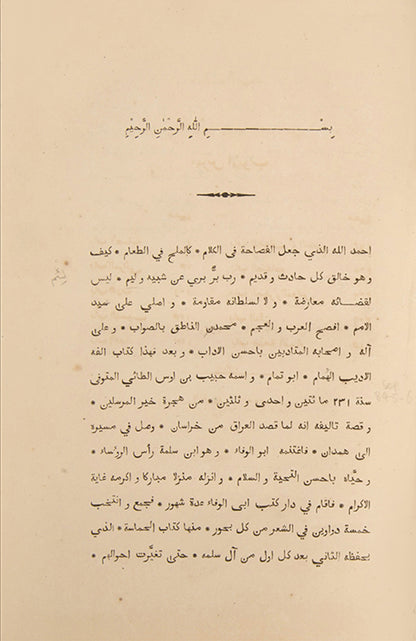 بِسْــــــــمِ اللهِ الرَّحْمٰنِ الرَّحِيْمِ
احمد الله الذي جعل الفصاحة فى الكلام * كالملح في الطعام * كيف
وهو خالق كل حادث و قديم * رب برٌّ بري عن شبيه و ليم * ليس
لقضائه معارضة * و لا لسلطانه مقاومة * و اصلي على سيد
الامم * افصح العرب و العجم * محمدن الناطق بالصواب * و على
آله و اصحابه المقادبين باحسن الاداب * و بعد فهذا كتاب الفه
الاديب الهمام * ابو تمام * و اسمه حبيب بن اوس الطائي المتوفى
سنة ٢٣١ مائتين و احدى و ثلثين * من هجرة خير المرسلين *
و قصة تاليفه انه لما قصد العراق من خراسان * وصل في مسيره
الى همدان * فاغتنمه ابو الوفاء * و هو ابن سلمة رأس الروساء *
و حيَّاه باحسن التحية و السلام * و انزله منزلا مباركا و اكرمه غاية
الاكرام * فاقام في دار كتب ابى الوفاء عدة شهور * فجمع و انتخب
خمسة دواوين في الشعر من كل بحور * منها كتاب الحماسة * الذي
يحفظه الثاني بعد كل اول من آل سلمه * حتى تغيَّرت احوالهم *